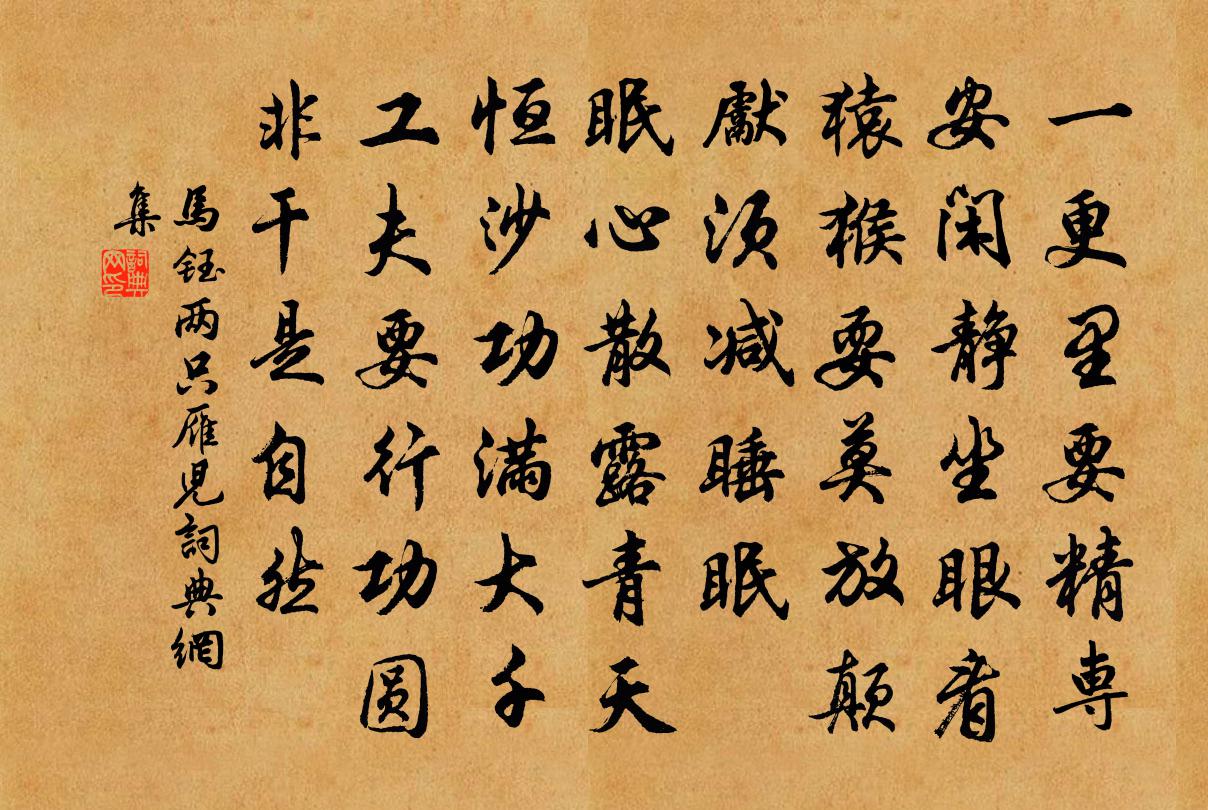 一更里要精専
安闲静坐眼看
猿猴耍莫放颠
獻须减睡眠
眠心散露青天
恒沙功满大千
工夫要行功圆
非干是自然
馬鈺两只雁児詞典網
集
詞典网印